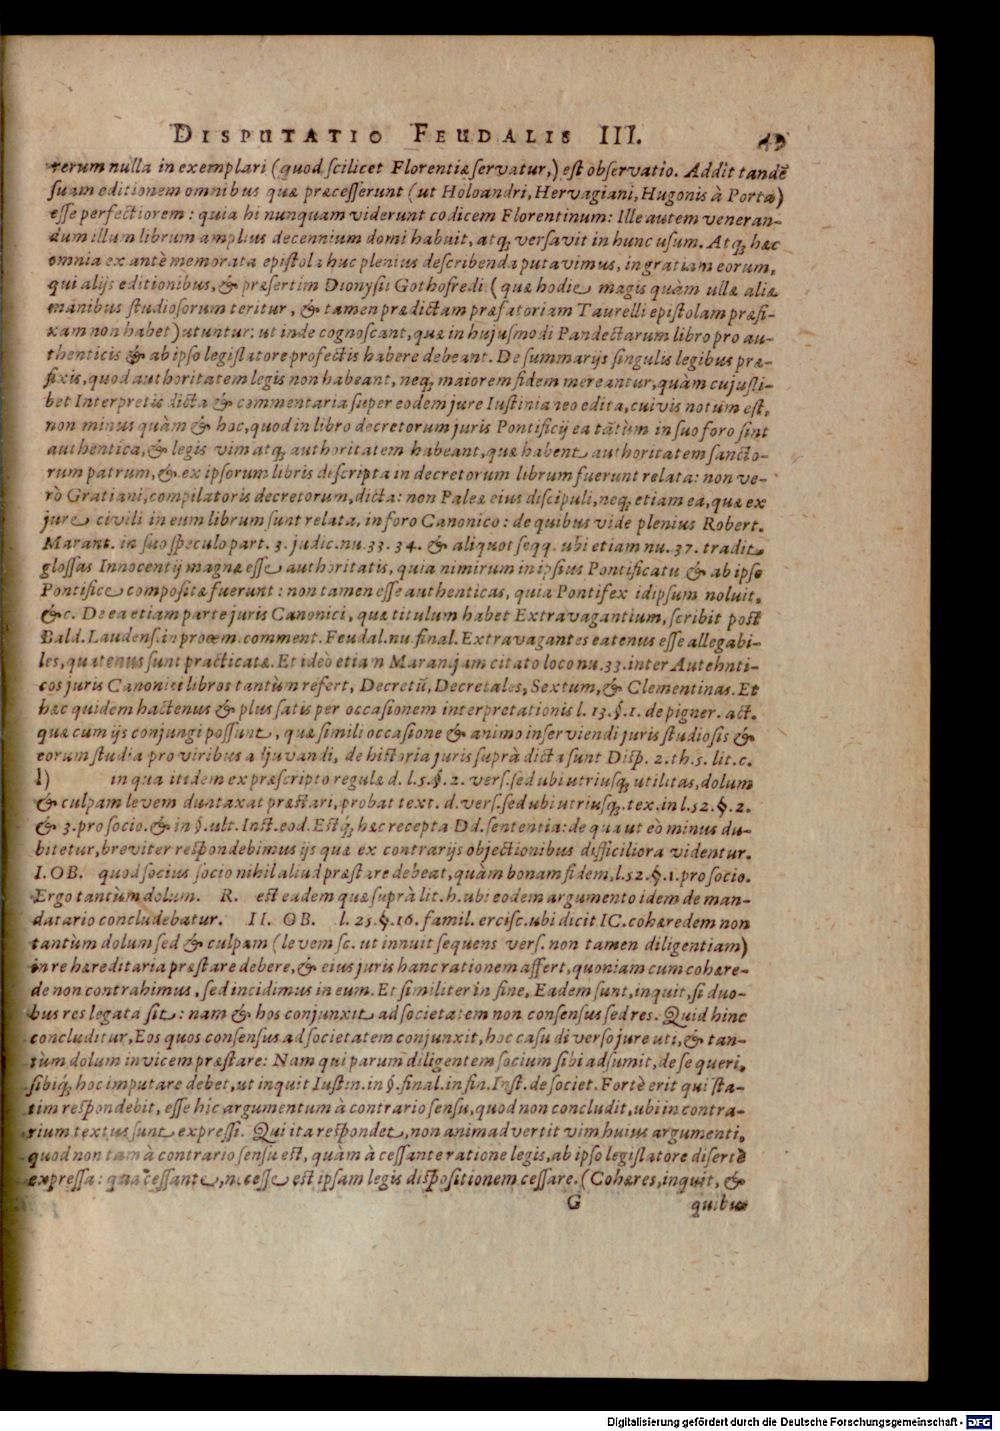 DISPUTATIO FEUDALIS III. 49
rerum nulla in exemplari (quod scilicet Florentiæ servatur,) est observatio. Addit tandē
suam editionem omnibus quæ præcesserunt (ut Holoandri, Hervagiani, Hugonis à Porta)
esse perfectiorem: quia hi nunquam viderunt codicem Florentinum: Ille autem veneran-
dum illum librum amplius decennium domi habuit, atq; versavit in hunc usum. Atq; hæc
omnia ex antè memorata epistola huc plenius describenda putavimus, in gratiam eorum,
qui alijs editionibus, & præsertim Dionysii Gothofredi (quæ hodie magis quàm ullæ aliæ
manibus studiosorum teritur, & tamen prædictam præfatoriam Taurelli epistolam præfi-
xam non habet) utuntur: ut inde cognoscant, quæ in hujusmodi Pandectarum libro pro au-
thenticis & ab ipso legislatore profectis habere debeant. De summarijs singulis legibus præ-
fixis, quod authoritatem legis non habeant, neq; maiorem fidem mereantur, quàm cujusli-
bet Interpretis dicta & commentaria super eodem jure Iustinianeo edita, cuivis notum est,
non minus quàm & hoc, quod in libro decretorum juris Pontificij ea tātùm in suo foro sint
authentica, & legis vim atq; authoritatem habeant, quæ habent authoritatem sancto-
rum patrum, & ex ipsorum libris descripta in decretorum librum fuerunt relata: non ve-
rò Gratiani, compilatoris decretorum, dicta: non Paleæ eius discipuli, neq; etiam ea, quæ ex
jure civili in eum librum sunt relata, in foro Canonico: de quibus vide plenius Robert.
Marant. in suo speculo part. 3. judic. nu. 33. 34. & aliquot seqq. ubi etiam nu. 37. tradit
glossas Innocentij magnæ esse authoritatis, quia nimirum in ipsius Pontificatu & ab ipso
Pontifice compositæ fuerunt: non tamen esse authenticas, quia Pontifex idipsum noluit,
&c. De ea etiam parte juris Canonici, quæ titulum habet Extravagantium, scribit post
Bald. Laudens. in proœm. comment. Feudal. nu. final. Extravagantes eatenus esse allegabi-
les, quatenus sunt practicatæ. Et ideò etiam Maran. jam citato loco nu. 33. inter Autehnti-
cos juris Canonici libros tantùm refert, Decretū, Decretales, Sextum, & Clementinas. Et
hæc quidem hactenus & plus satis per occasionem interpretationis l. 13. §. 1. de pigner. act.
quæ cum ijs conjungi possunt, quæ simili occasione & animo inserviendi juris studiosis &
eorum studia pro viribus adjuvandi, de historia juris suprà dicta sunt Disp. 2. th. 5. lit. c.
l) in qua itidem ex præscripto regulæ d. l. 5. §. 2. vers. sed ubi utriusq; utilitas, dolum
& culpam levem duntaxat præstari, probat text. d. vers. sed ubi utriusq;. tex. in l. 52. §. 2.
& 3. pro socio. & in §. ult. Inst. eod. Estq́; hæc recepta Dd. sententia: de qua ut eò minus du-
bitetur, breviter respondebimus ijs quæ ex contrarijs objectionibus difficiliora videntur.
I. OB. quod socius socio nihil aliud præstare debeat, quàm bonam fidem, l. 52. §. 1. pro socio.
Ergo tantùm dolum. R. est eadem quæ suprà lit. h. ubi eodem argumento idem de man-
datario concludebatur. II. OB. l. 25. §. 16. famil. ercisc. ubi dicit IC. cohæredem non
tantùm dolum sed & culpam (levem sc. ut innuit sequens vers. non tamen diligentiam)
in re hæreditaria præstare debere, & eius juris hanc rationem affert, quoniam cum cohære-
de non contrahimus, sed incidimus in eum. Et similiter in fine, Eadem sunt, inquit, si duo-
bus res legata sit: nam & hos conjunxit ad societatem non consensus sed res. Quid hinc
concluditur, Eos quos consensus ad societatem conjunxit, hoc casu diverso jure uti, & tan-
tùm dolum invicem præstare: Nam qui parum diligentem socium sibi adsumit, de se queri,
sibiq́; hoc imputare debet, ut inquit Iustin. in §. final. in fin. Inst. de societ. Fortè erit qui sta-
tim respondebit, esse hic argumentum à contrario sensu, quod non concludit, ubi in contra-
rium textus sunt expressi. Qui ita respondet, non animadvertit vim huius argumenti,
quod non tam à contrario sensu est, quàm à cessante ratione legis, ab ipso legislatore disertè
expressa: qua cessante, necesse est ipsam legis dispositionem cessare. (Cohæres, inquit, &
G quibus
Digitalisierung gefördert durch die Deutsche Forschungsgemeinschaft - DFG